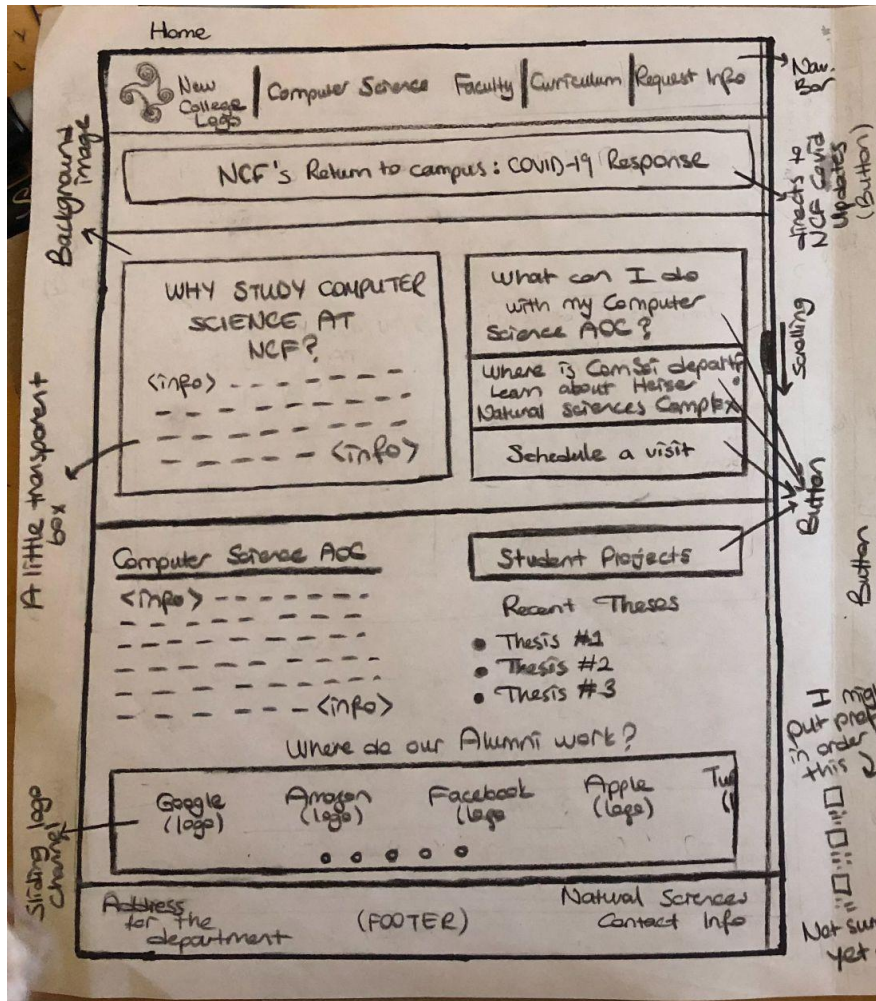 Home
New
College
Logo
Computer Science
Faculty
Curriculum
Request Info
Nav.
Bar
NCF's Return to campus: COVID-19 Response
directs to
NCF Covid
Updates
(Button)
Background
image
WHY STUDY COMPUTER
SCIENCE AT
NCF?
<info>
<info>
What can I do
with my Computer
Science AOC?
Where is ComSci depart?
Learn about Heiser
Natural Sciences Complex
Schedule a visit
Scrolling
Button
A little transparent
box
Button
Computer Science AOC
<info>
<info>
Student Projects
Recent Theses
Thesis #1
Thesis #2
Thesis #3
Where do our Alumni work?
Google
(logo)
Amazon
(logo)
Facebook
(logo
Apple
(logo)
Sliding logo
channel
put
order
this
Address
for the
department
(FOOTER)
Natural Sciences
Contact Info
Not
yet